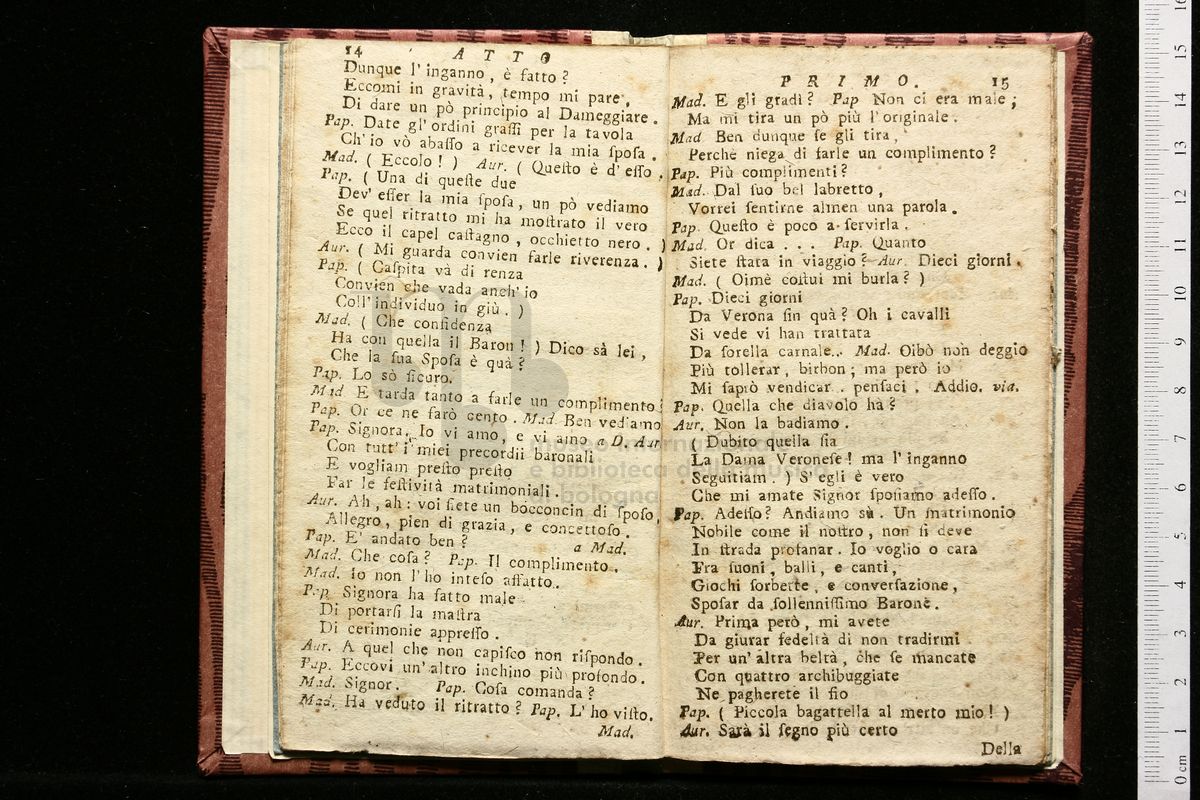 14 ATTO
Dunque l' inganno, è fatto?
Eccomi in gravità, tempo mi pare,
Di dare un pò principio al Dameggiare.
Pap. Date gl' ordini graſſi per la tavola
Ch' io vò abaſſo a ricever la mia ſpoſa.
Mad. ( Eccolo! ) Aur. ( Queſto è d' eſſo.
Pap. ( Una di queſte due
Dev' eſſer la mia ſpoſa, un pò vediamo
Se quel ritratto mi ha moſtrato il vero
Ecco il capel caſtagno, occhietto nero. )
Aur. ( Mi guarda convien farle riverenza. )
Pap. ( Caſpita và di renza
Convien che vada anch' io
Coll' individuo in giù. )
Mad. ( Che confidenza
Ha con quella il Baron! ) Dico sà lei,
Che la ſua Spoſa è quà?
Pap. Lo sò ſicuro.
Mad E tarda tanto a farle un complimento?
Pap. Or ce ne farò cento. Mad. Ben ved'amo
Pap. Signora, Io vi amo, e vi amo a D. Aur
Con tutt' i miei precordii baronali
E vogliam preſto preſto
Far le feſtività matrimoniali.
Aur. Ah, ah: voi ſiete un bocconcin di ſpoſo,
Allegro, pien di grazia, e concettoſo.
Pap. E' andato ben? a Mad.
Mad. Che coſa? Pap. Il complimento.
Mad. Io non l' ho inteſo affatto.
Pap Signora ha fatto male
Di portarſi la maſtra
Di cerimonie appreſſo.
Aur. A quel che non capiſco non riſpondo.
Pap. Eccovi un' altro inchino più profondo.
Mad. Signor. Pap. Coſa comanda?
Mad. Ha veduto il ritratto? Pap. L' ho viſto.
Mad.
PRIMO. 15
Mad. E gli gradì? Pap Non ci era male;
Ma mi tira un pò più l' originale.
Mad Ben dunque ſe gli tira,
Perchè niega di farle un complimento?
Pap. Più complimenti?
Mad. Dal ſuo bel labretto,
Vorrei ſentirne almen una parola.
Pap. Queſto è poco a ſervirla.
Mad. Or dica . . . Pap. Quanto
Siete ſtata in viaggio? Aur. Dieci giorni.
Mad. ( Oimè coſtui mi burla? )
Pap. Dieci giorni
Da Verona ſin quà? Oh i cavalli
Si vede vi han trattata
Da ſorella carnale.. Mad. Oibò non deggio
Più tollerar, birbon; ma però io
Mi ſapiò vendicar. penſaci. Addio. via.
Pap. Quella che diavolo hà?
Aur. Non la badiamo.
( Dubito quella ſia
La Dama Veroneſe! ma l' inganno
Seguitiam. ) S' egli è vero
Che mi amate Signor ſpoſiamo adeſſo.
Pap. Adeſſo? Andiamo sù. Un matrimonio
Nobile come il noſtro, non ſi deve
In ſtrada profanar. Io voglio o cara
Fra ſuoni, balli, e canti,
Giochi ſorbette, e converſazione,
Spoſar da ſollenniſſimo Barone.
Aur. Prima però, mi avete
Da giurar fedeltà di non tradirmi
Per un' altra beltà, che ſe mancate
Con quattro archibuggiate
Ne pagherete il fio
Pap. ( Piccola bagattella al merto mio! )
Aur. Sarà il ſegno più certo
Della
museo internazionale
e biblioteca della musica
di bologna